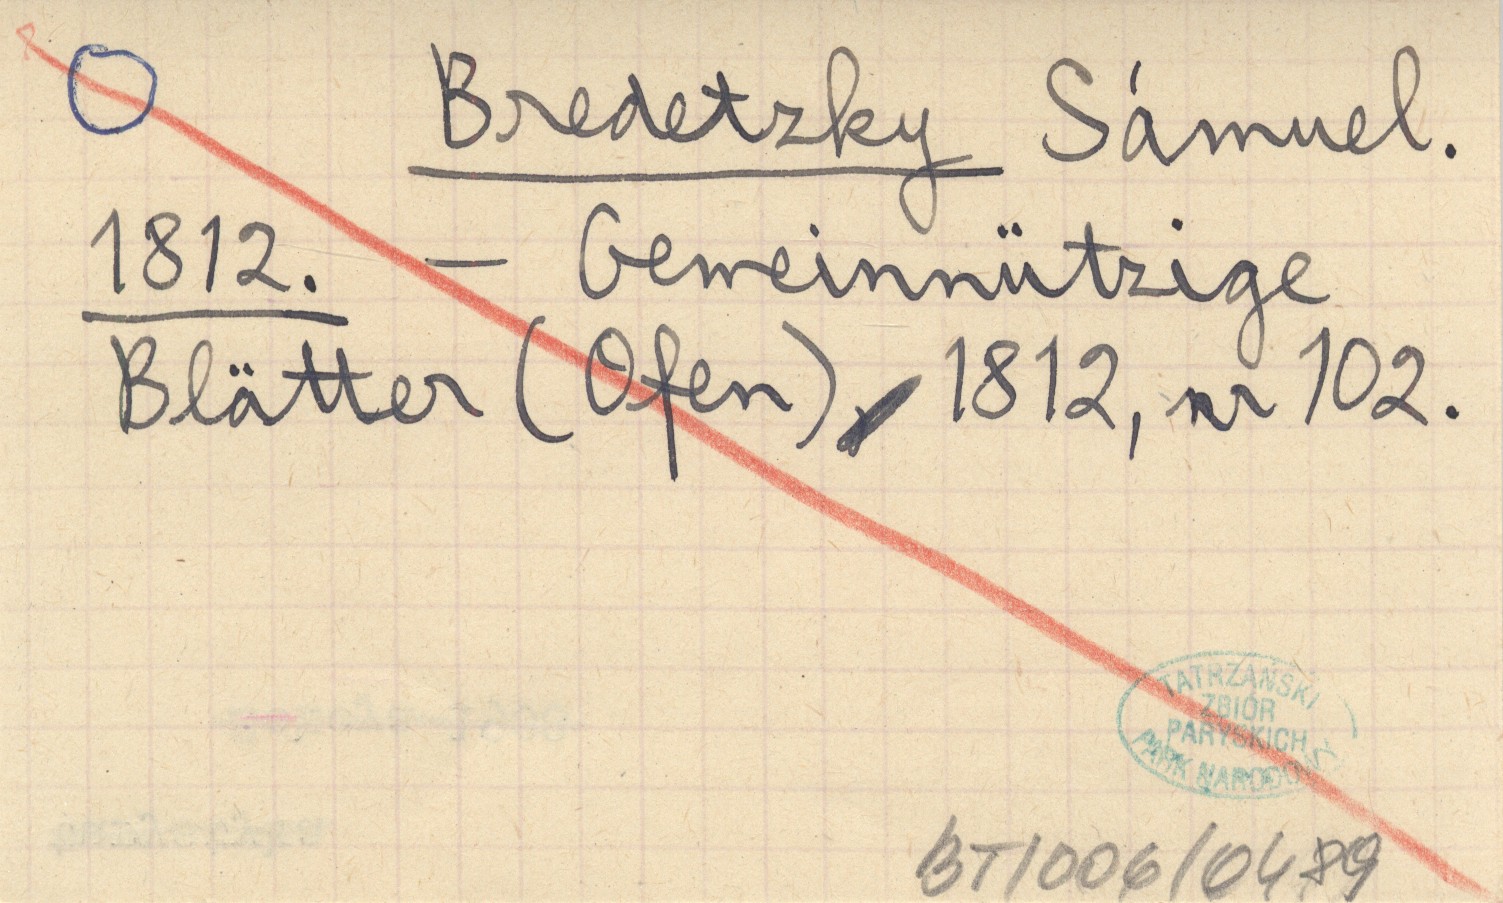 Bredetzky Sámuel.
1812. — Gemeinnützige
Blätter (Ofen), 1812, nr 102.
TATRZAŃSKI
ZBIÓR
PARYSKICH
PARK NARODOWY
BT/006/0489